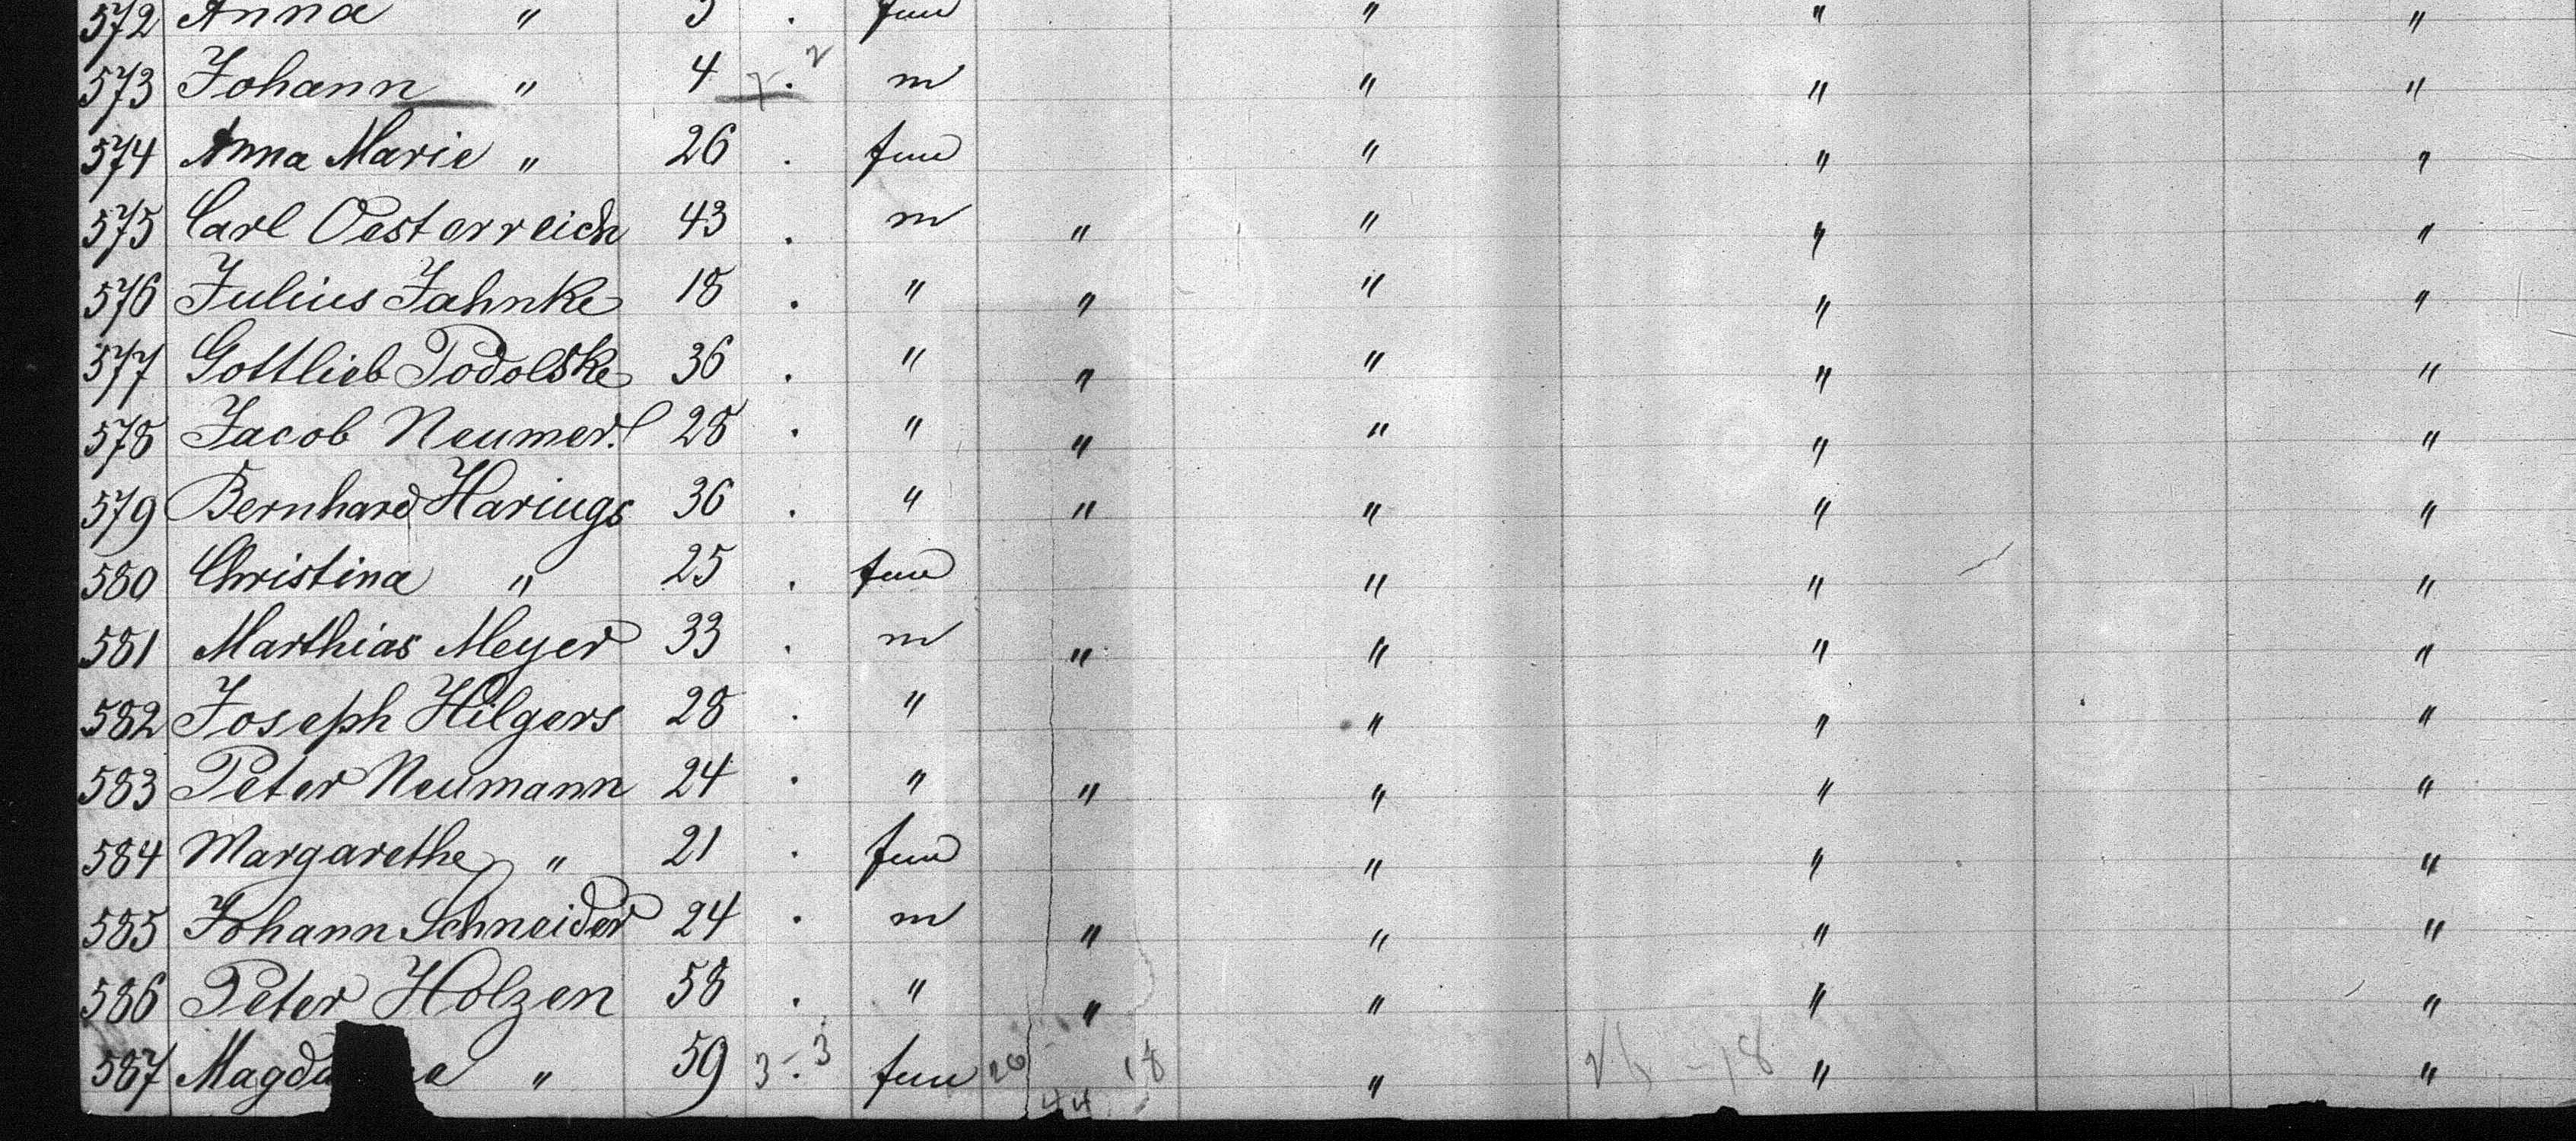 572 Anna " fem " " "
573 Johann " 4 m " " "
574 Anna Marie " 26 fem " " "
575 Carl Oesterreich 43 m " " " "
576 Julius Jahnke 18 " " " " "
577 Gottlieb Podolske 36 " " " " "
578 Jacob 28 " " " " "
579 Bernhard Harings 36 " " " " "
580 Christina " 25 fem " " "
581 Marthias Meyer 33 m " " " "
582 Joseph Hilgers 28 " " " "
583 Peter Neumann 24 " " " " "
584 Margarethe " 21 fem " " "
585 Johann Schneider 24 m " " " "
586 Peter Holzen 58 " " " " "
587 " 59 3 . 3 fem 26 18 " " "
44